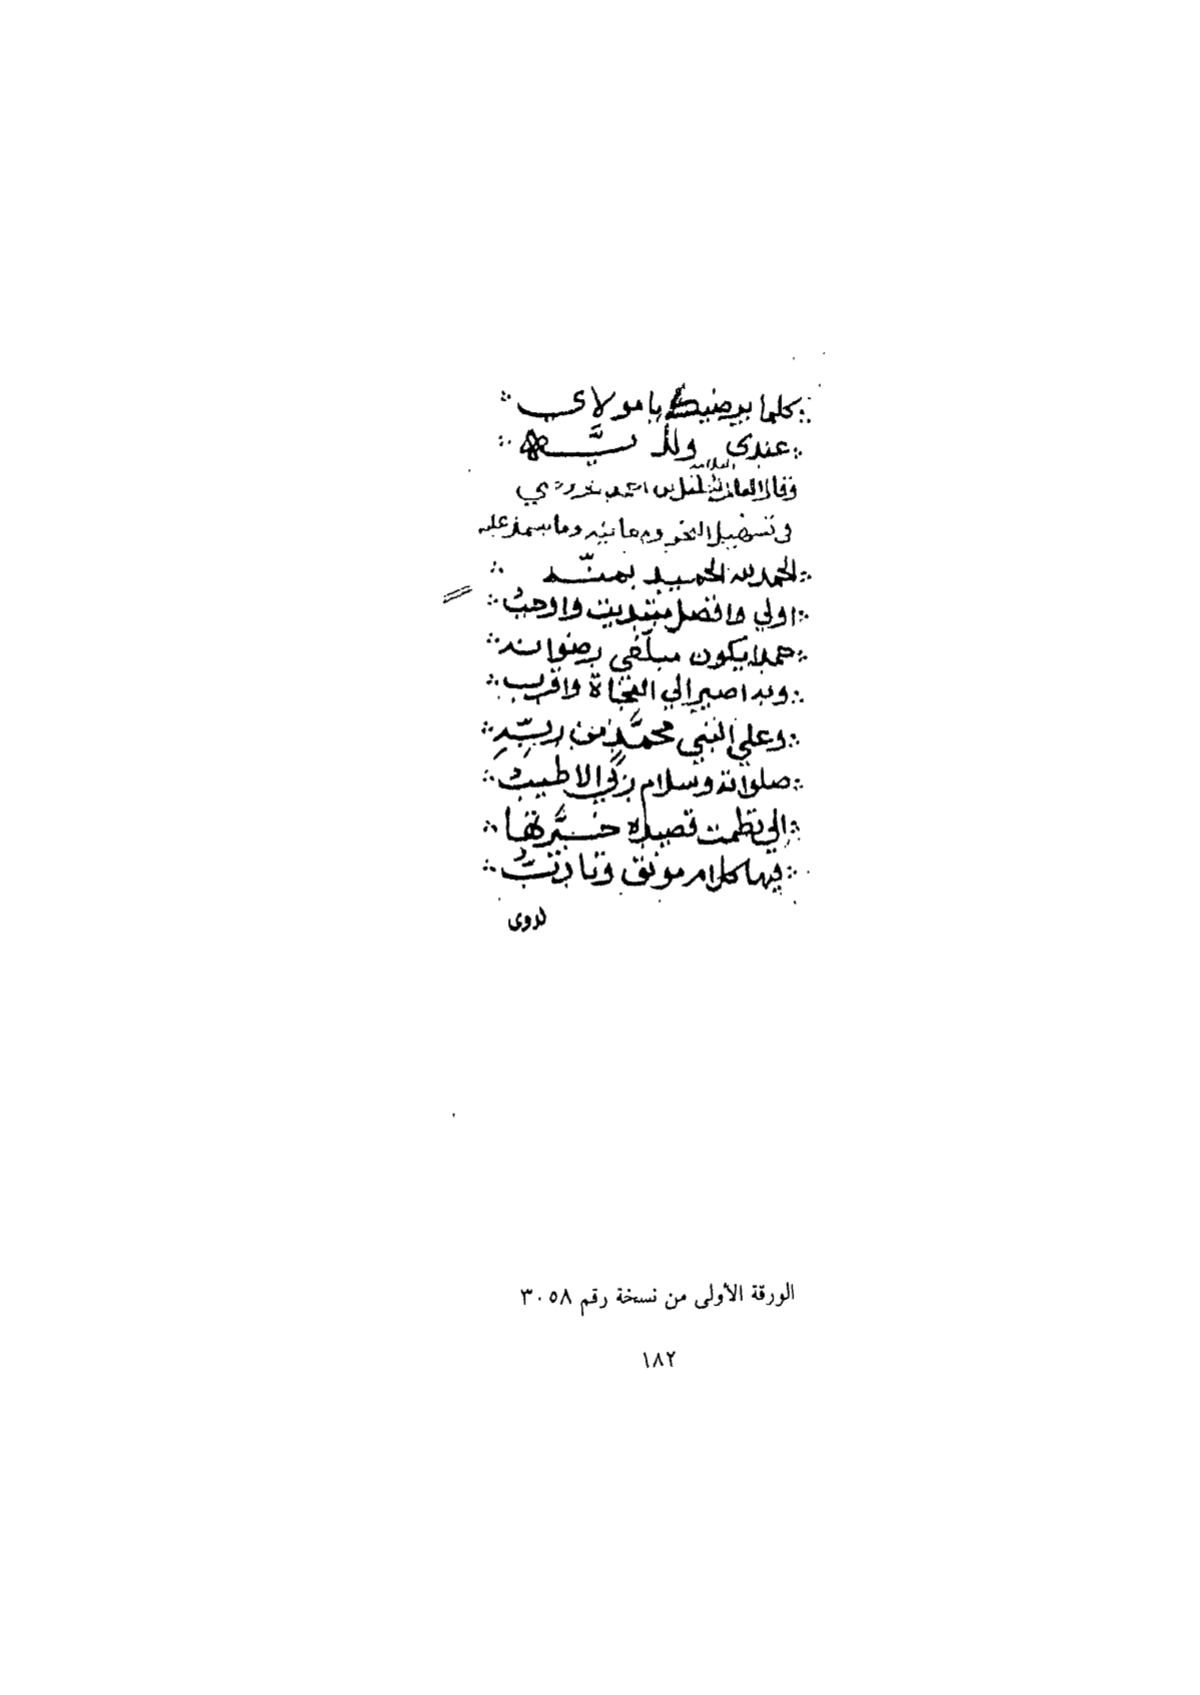 كلما يرضيك يا مولاي
عندي ولذ
العلامة
وقال بن احمد
في تسهيل النحو ومعانيه وما يشمل عليه
الحمد لله الحميد بمنه
اولي وافضل ما ابتديت واوجب
حمدا يكون مبلغي رضوانه
وبه اصير الي النجاة واقرب
وعلي النبي محمد من ربه
صلواته وسلام ربي الاطيب
اني نظمت قصيدة حبرتها
فيها كلام مونق وتادب
لذوي
الورقة الأولى من نسخة رقم ٣٠٥٨
١٨٢